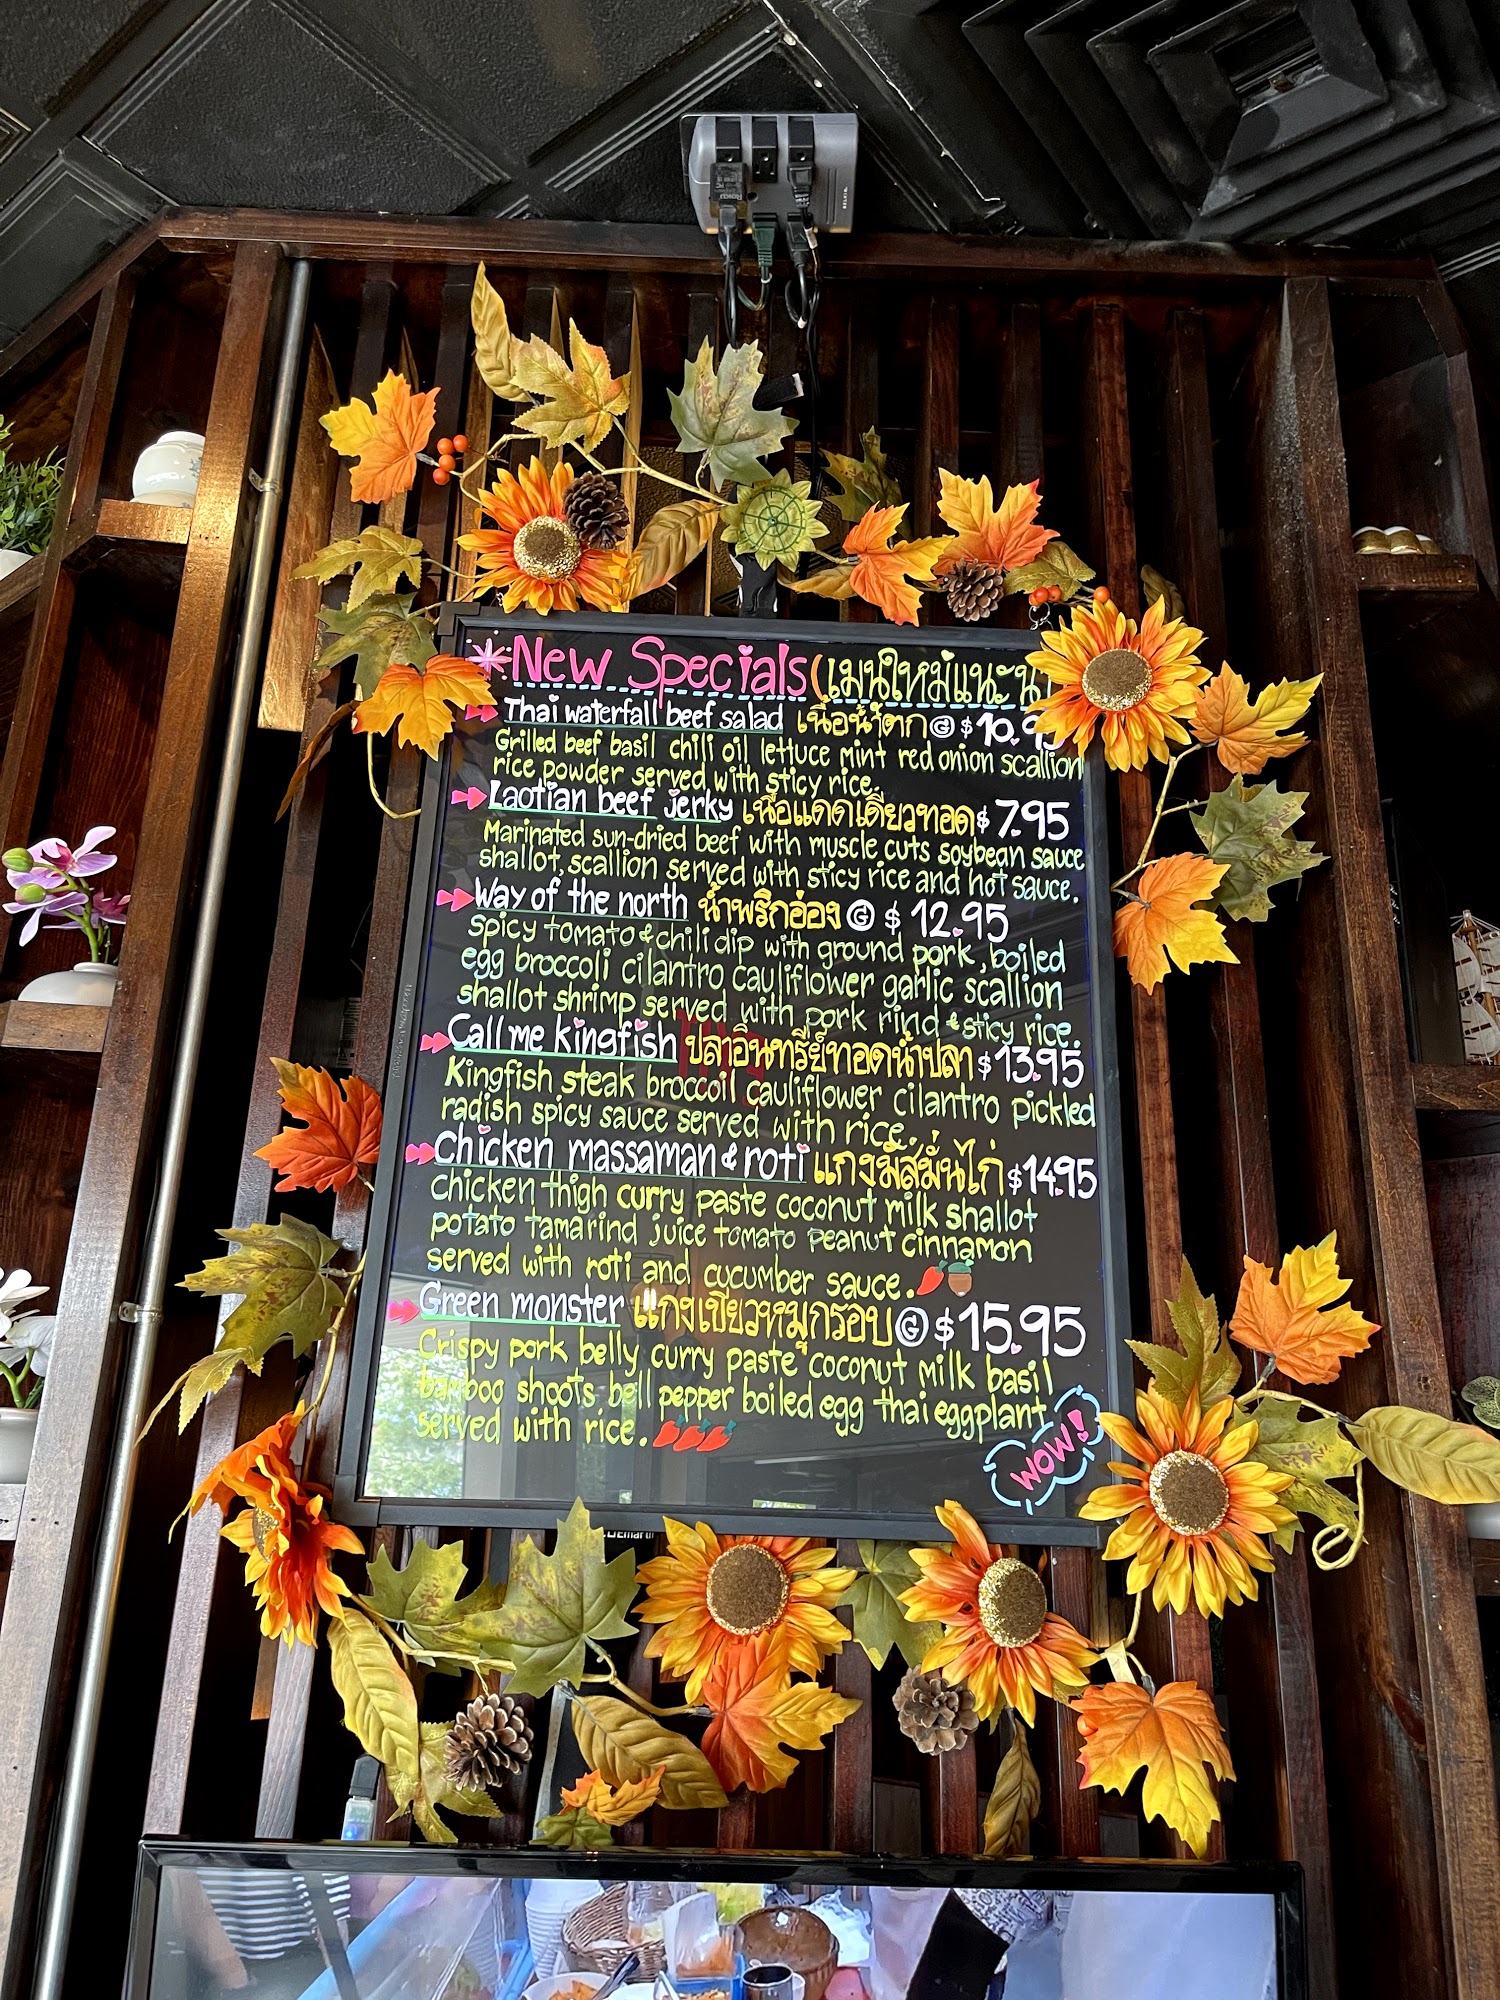 ROKU
BELKIN
New Specials (เมนูใหม่แนะนำ
Thai waterfall beef salad เนื้อน้ำตก Ⓖ $10.95
Grilled beef basil chili oil lettuce mint red onion scallion
rice powder served with sticy rice.
Laotian beef jerky เนื้อแดดเดียวทอด $7.95
Marinated sun-dried beef with muscle cuts soybean sauce
shallot, scallion served with sticy rice and hot sauce.
Way of the north น้ำพริกอ่อง Ⓖ $12.95
Spicy tomato & chili dip with ground pork, boiled
egg broccoli cilantro cauliflower garlic scallion
shallot shrimp served with pork rind & sticy rice.
Call me kingfish ปลาอินทรีย์ทอดน้ำปลา $13.95
Kingfish steak broccoil cauliflower cilantro pickled
radish spicy sauce served with rice.
Chicken massaman & roti แกงมัสมั่นไก่ $14.95
chicken thigh curry paste coconut milk shallot
potato tamarind juice tomato peanut cinnamon
served with roti and cucumber sauce.
Green monster แกงเขียวหมูกรอบ Ⓖ $15.95
Crispy pork belly curry paste coconut milk basil
bamboo shoots bell pepper boiled egg thai eggplant
served with rice.
WOW!